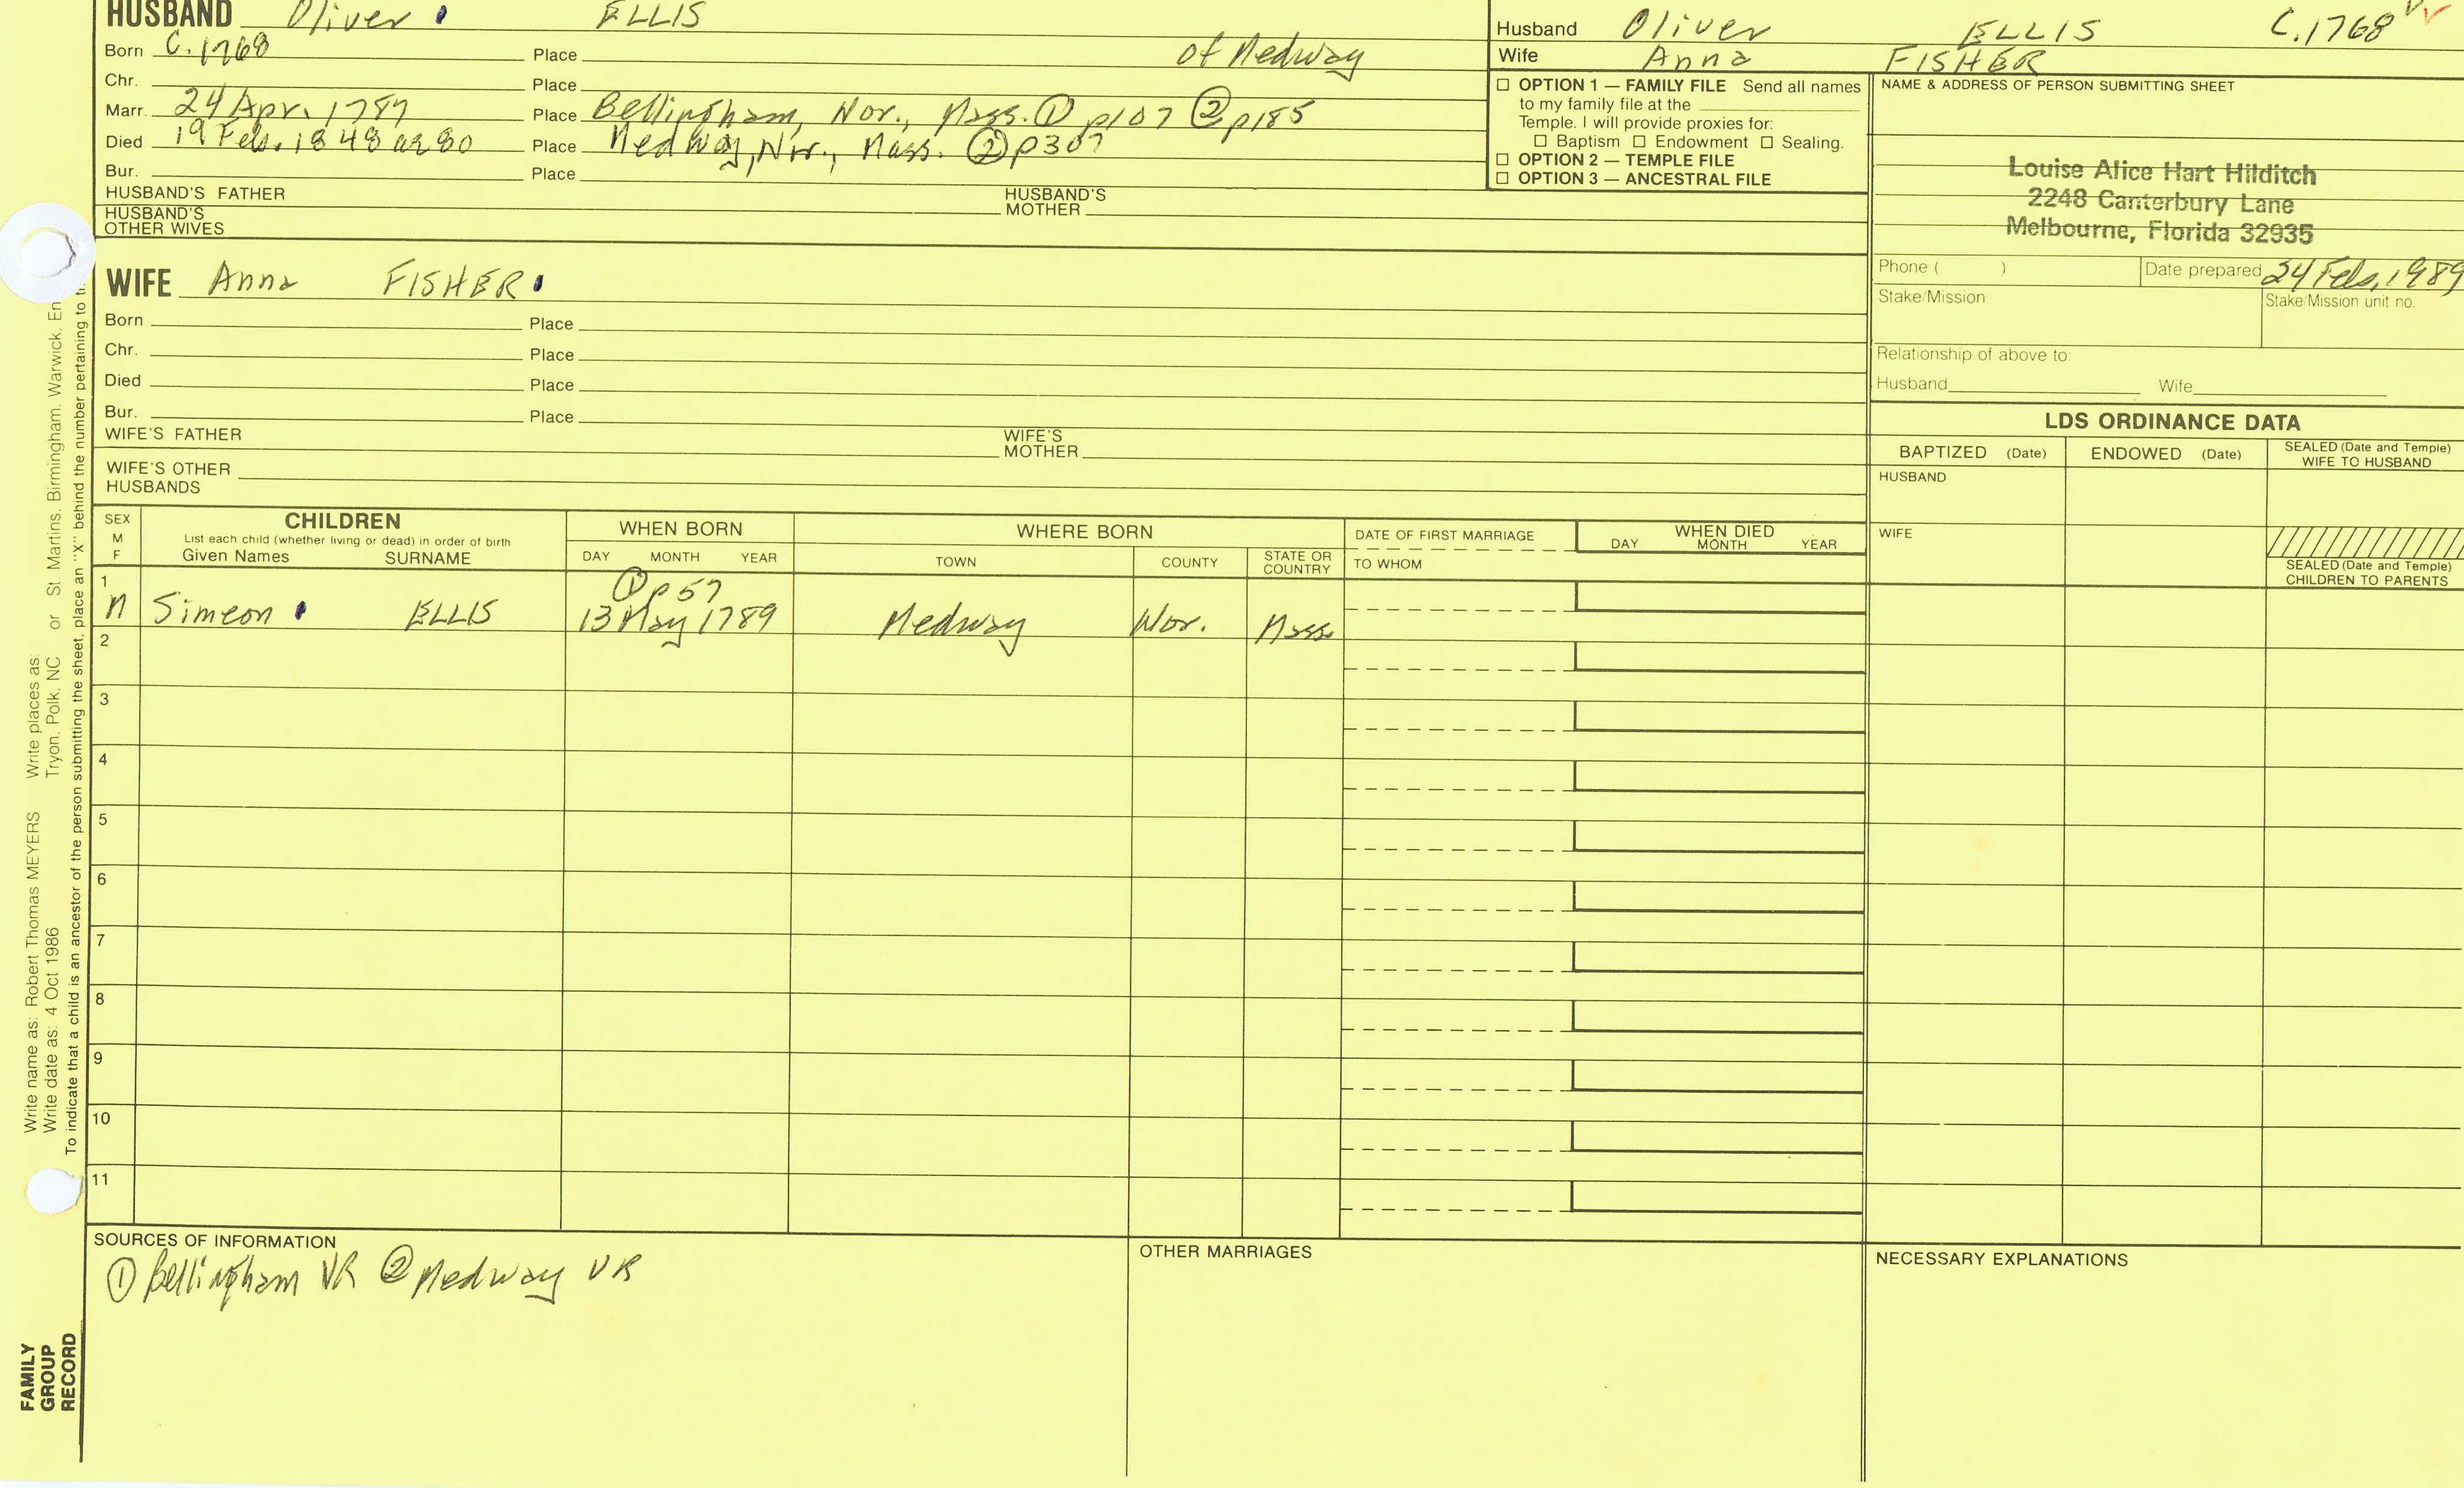 HUSBAND Oliver ELLIS
Born C. 1768 Place of Medway
Chr. Place
Marr. 24 Apr. 1787 Place Bellingham, Wor., Mass. ① p107 ② p185
Died 19 Feb. 1848 ae 80 Place Medway, Wor., Mass. ② p307
Bur. Place
HUSBAND'S FATHER HUSBAND'S MOTHER
HUSBAND'S OTHER WIVES
Husband Oliver ELLIS C. 1768
Wife Anna FISHER
☐ OPTION 1 — FAMILY FILE Send all names
to my family file at the
Temple. I will provide proxies for:
☐ Baptism ☐ Endowment ☐ Sealing.
☐ OPTION 2 — TEMPLE FILE
☐ OPTION 3 — ANCESTRAL FILE
NAME & ADDRESS OF PERSON SUBMITTING SHEET
Louise Alice Hart Hilditch
2248 Canterbury Lane
Melbourne, Florida 32935
Phone ( ) Date prepared 24 Feb. 1989
Stake/Mission Stake/Mission unit no.
Relationship of above to:
Husband Wife
WIFE Anna FISHER
Born Place
Chr. Place
Died Place
Bur. Place
WIFE'S FATHER WIFE'S MOTHER
WIFE'S OTHER HUSBANDS
LDS ORDINANCE DATA
BAPTIZED (Date) ENDOWED (Date) SEALED (Date and Temple) WIFE TO HUSBAND
HUSBAND
WIFE
SEALED (Date and Temple) CHILDREN TO PARENTS
SEX M F
CHILDREN
List each child (whether living or dead) in order of birth
Given Names SURNAME
WHEN BORN
DAY MONTH YEAR
WHERE BORN
TOWN COUNTY STATE OR COUNTRY
DATE OF FIRST MARRIAGE
TO WHOM
WHEN DIED
DAY MONTH YEAR
① p 57
1 M Simeon ELLIS 13 May 1789 Medway Wor. Mass.
2
3
4
5
6
7
8
9
10
11
SOURCES OF INFORMATION
① Bellingham VR ② Medway VR
OTHER MARRIAGES
NECESSARY EXPLANATIONS
Write name as: Robert Thomas MEYERS Write places as:
Write date as: 4 Oct 1986 Tryon, Polk, NC or St. Martins, Birmingham, Warwick, En
To indicate that a child is an ancestor of the person submitting the sheet, place an "X" behind the number pertaining to
FAMILY
GROUP
RECORD